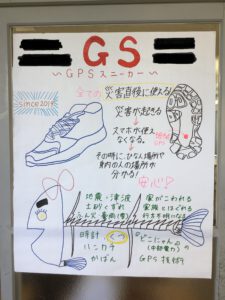 GS
～GPSスニーカー～
since2019
全ての災害直後に使える!
災害が起きる
スマホが使えなくなる。
その時に、ひなん場所や
身内の人の場所が
分かる!
安心♪
地震・津波
土砂くずれ
ふん火・豪雨(雪)
家がこわれる
家族とはぐれる
行方不明になる
時計
くつ
ハンカチ
かばん
どこにゃんの
(中部電力)の
GPS技術